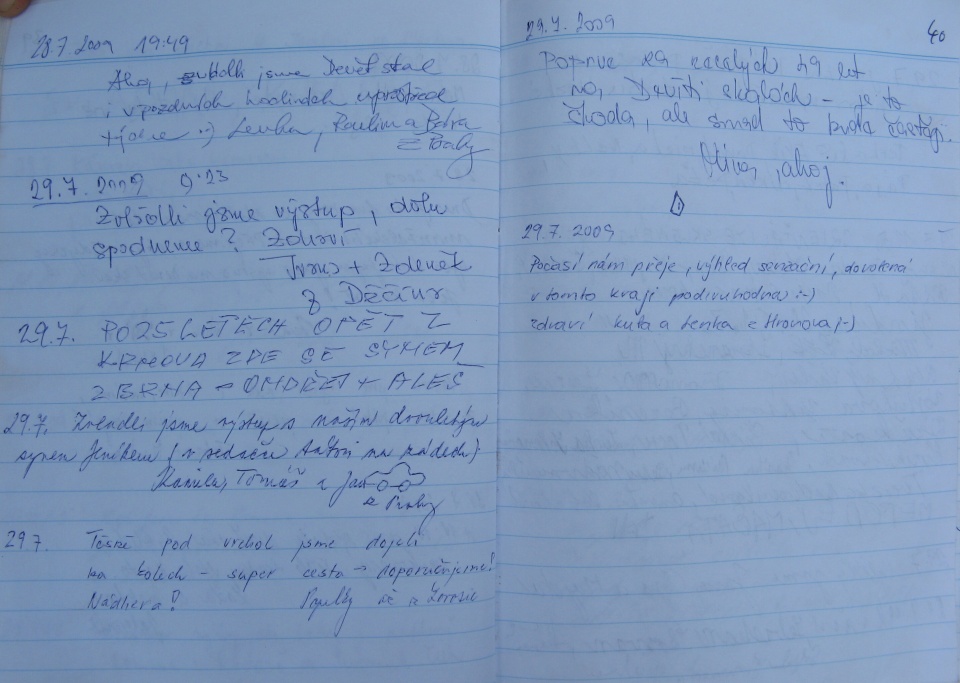 28.7 2009 19:49
Ahoj, zdolali jsme Devět skal
i v pozdních hodinách uprostřed
týdne :-) Lenka, Pavlína a Petra
z Prahy
29.7. 2009 9:23
Zvládli jsme výstup, dolu
spadneme? Zdraví
+ Zdeněk
z Děčína
29.7. PO 25 LETECH OPĚT Z
KRNOVA ZDE SE SYNEM
Z BRNA - ONDŘEJ + ALEŠ
29.7. Zvládli jsme výstup s naším dvouletým
synem Jeníkem (v sedačce tatovi na zádech)
Kamila, Tomáš a Jan
z Prahy
29.7. Těsně pod vrchol jsme dojeli
na kolech - super cesta → doporučujeme!
Nádhera!
29.7. 2009
40
Poprve za celých 49 let
na Devíti skalách - je to
škoda, ale snad to bude častěji.
, ahoj.
29.7. 2009
Počasí nám přeje, výhled senzační, dovolená
v tomto kraji podivuhodná :-)
zdraví Kuba a Lenka z Hronova ;-)